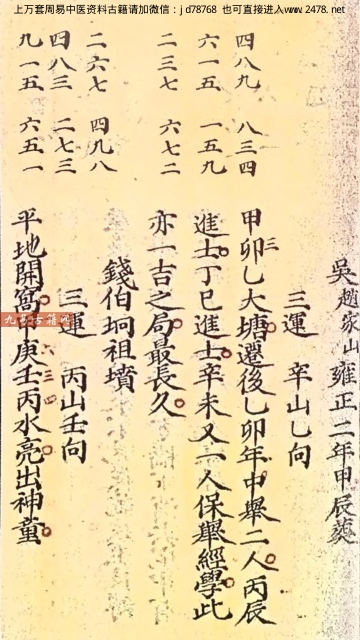 上万套周易中医资料古籍请加微信：jd78768 也可直接进入www.2478.net
吳趙家山雍正二年甲辰葵
三運 辛山乙向
四八九 八三四
甲卯乙大塘遷後乙卯年中舉二人丙辰
三
六一五 一五九
進士丁巳進士辛未又一人保舉經學此
二三七 六七二
亦一吉之局最長久
錢伯坰祖墳
二六七 四九八
三運 丙山壬向
四八三 二七三
九一五 六五一
平地開窩 庚壬丙水亮出神童
六三四
九易古籍网